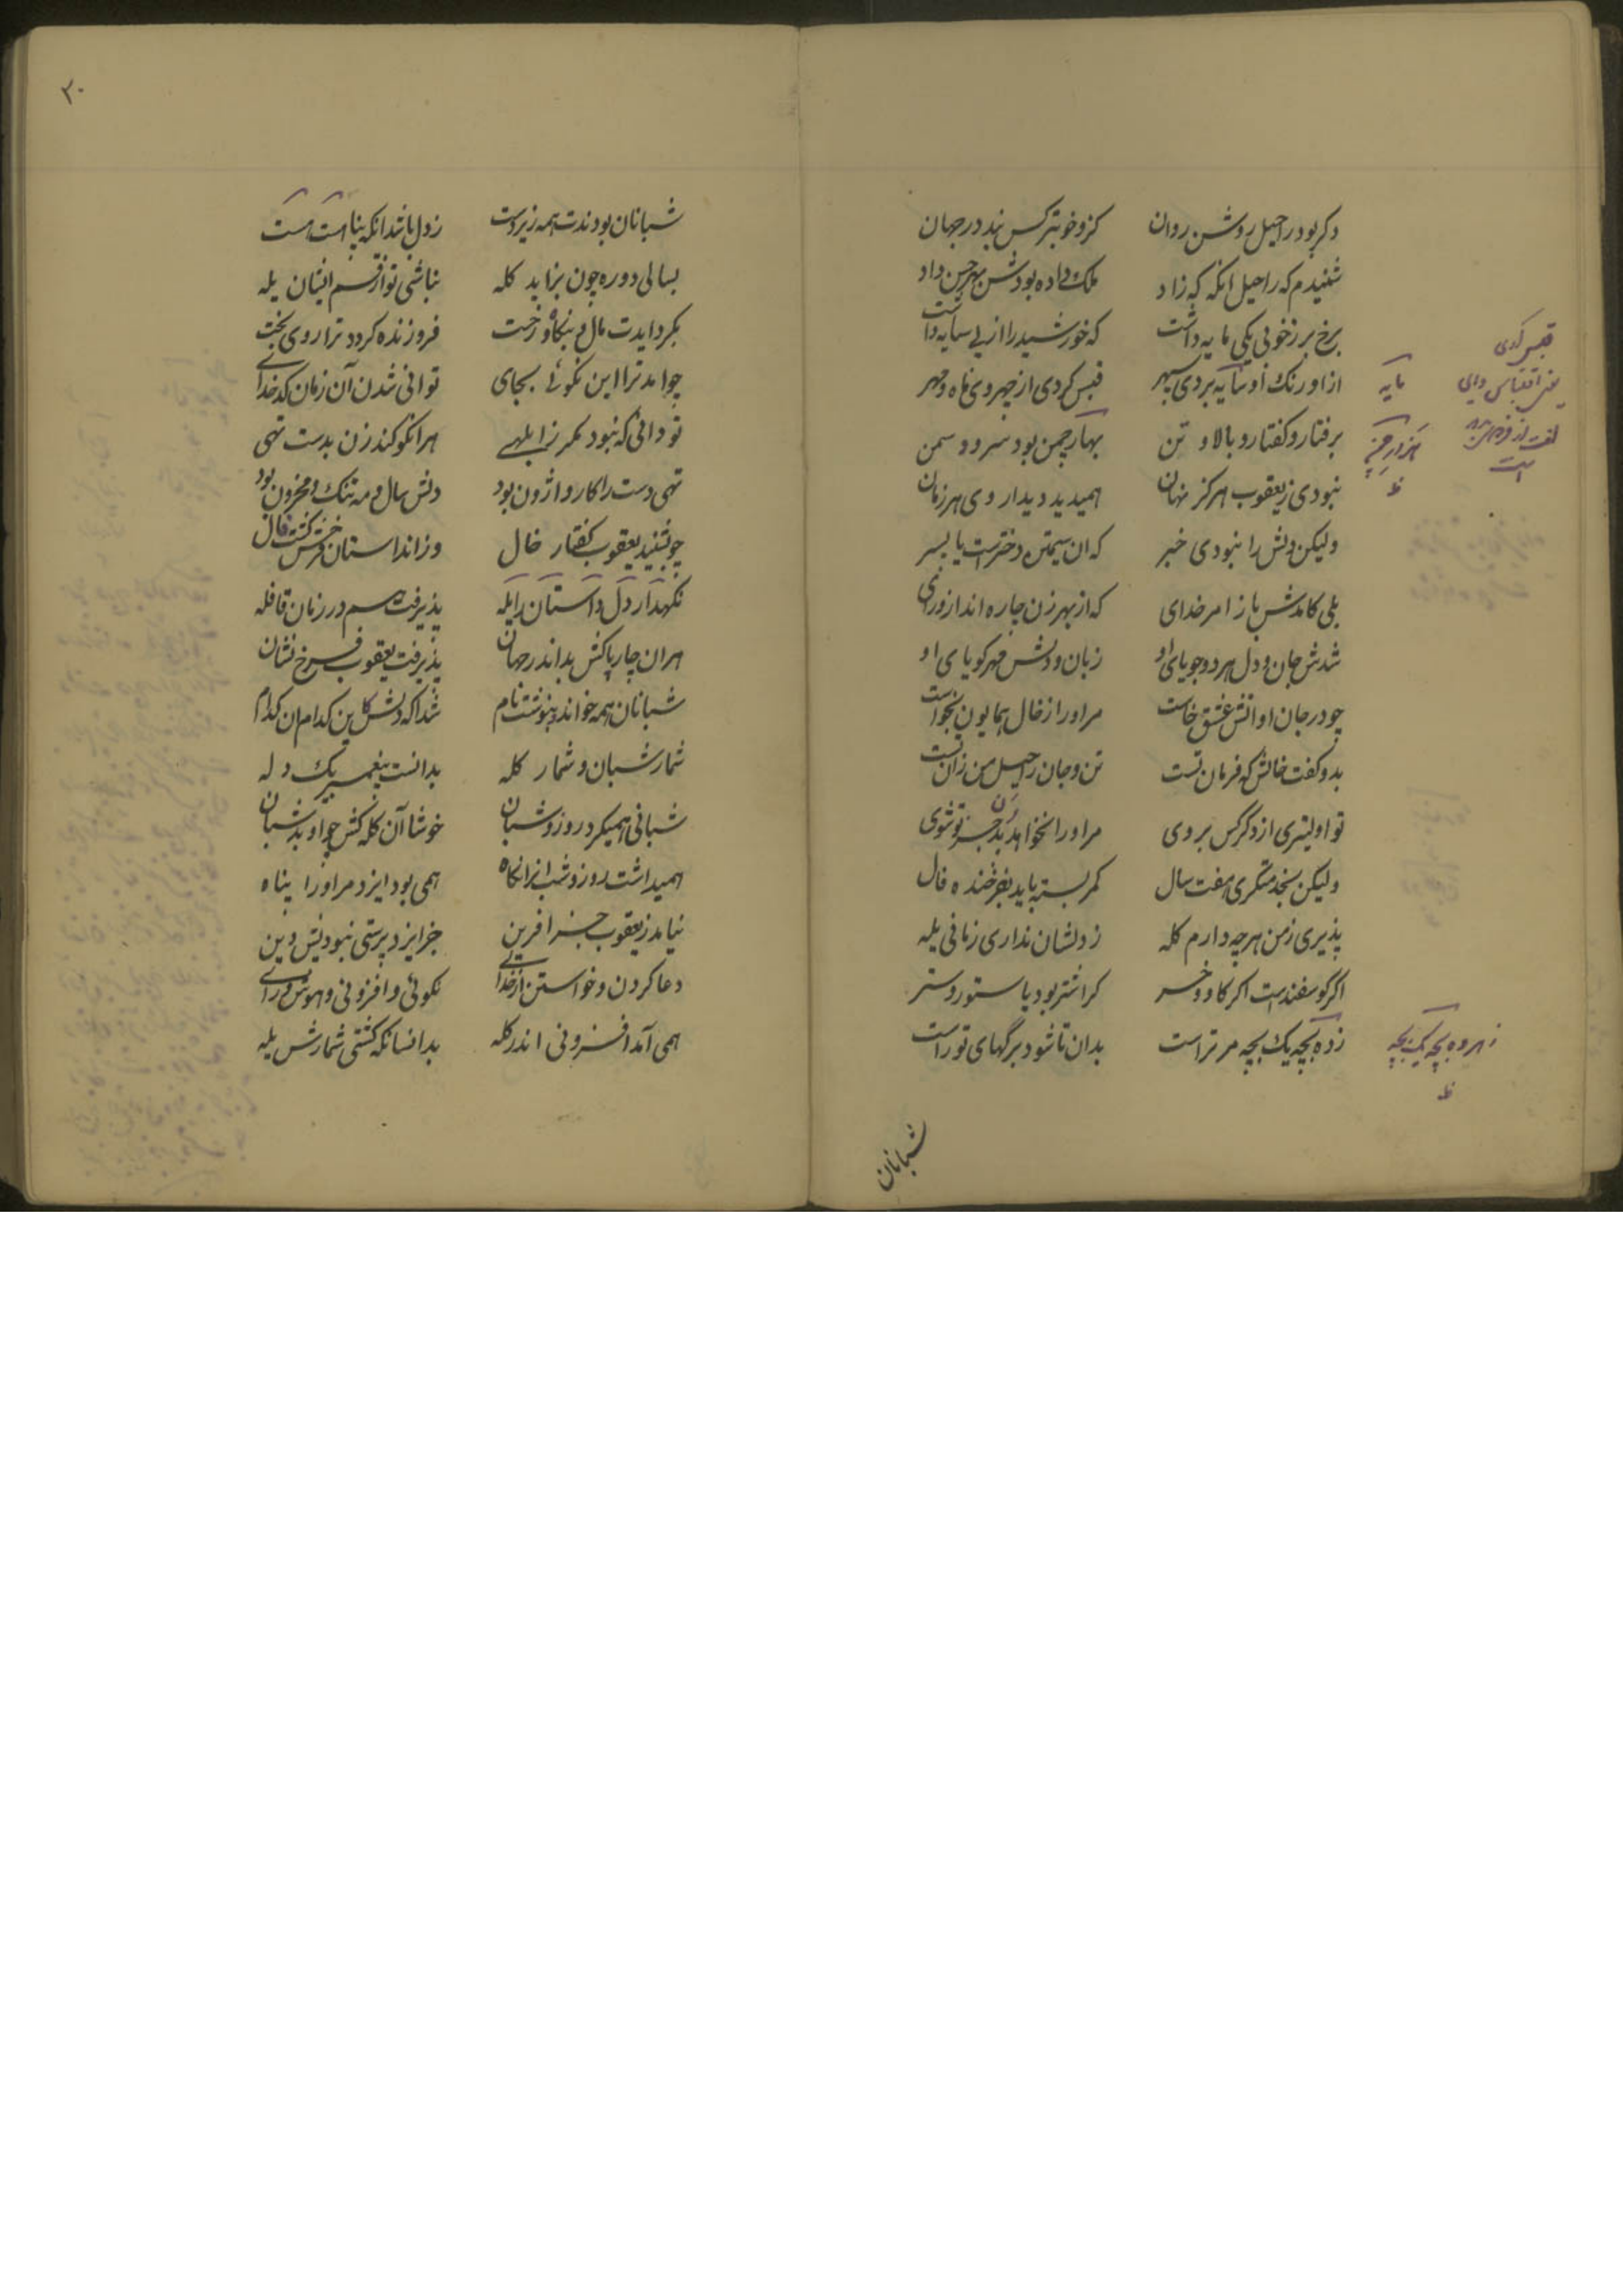 دکر بود راحیل روشن روان کزو خوبتر کس نبد در جهان
شنیدم که راحیل انکه که زاد ملک داده بودش بهر حسن داد
برخ بر ز خوبی یکی مایه داشت که خورشید را از پی سایه داشت
از اورنک او سایه بردی سپهر قبس کردی از چهر وی ماه و مهر
برفتار و کفتار و بالا و تن بهار چمن بود سرو و سمن
نبودی ز یعقوب هرکز نهان همیدید دیدار وی هر زمان
ولیکن دلش را نبودی خبر که ان سیمتن دخترست یا پسر
بلی کامدش باز امر خدای که از بهر زن چاره انداز ورای
شدش جان و دل هر دو جویای او زبان و دلش مهر کویای او
چو در جان او اتش عشق خاست مر او را ز خال همایون بخواست
بدو کفت خالش که فرمان تست تن و جان راحیل من زان تست
تو اولیتری از دکر کس بروی مر او را نخواهد بدن جز تو شوی
ولیکن ببخدمتکری هفت سال کمر بسته باید بفرخنده فال
پذیری ز من هرچه دارم کله ز دلشان نداری زمانی یله
اکر کوسفندست اکر کاو و خر کر اشتر بود یا ستور و ستر
ز ده بچه یک بچه مر تراست بدان تا شود برکهای تو راست
قبس کردی
یعنی اقتباس
مایه
ظ
ز هر ده بچه یک بچه
ظ
شبانان
۲۰
شبانان بودندت همه زیردست ز دل باشد انکه بناهت است
بسالی دو ره چون بزاید کله نباشی تو از قسم ایشان یله
بکرد ایدت مال و بنکاه و رخت فروزنده کردد ترا روی بخت
چو امد ترا این نکوئی بجای توانی شدن آن زمان کدخدای
تو دانی که نبود مکر ز ابلهی هر انکو کند زن بدست تهی
تهی دست را کار واژون بود دلش سال و مه تنک و محزون بود
چو بشنید یعقوب کفتار خال وز انداستان خوش کشت فال
نکهدار دل داستان را یله پذیرفت هم در زمان قافله
هر ان چارپا کش بد اندر جهان پذیرفت یعقوب فرخ نشان
شبانان همه خواند و بنوشت نام شد اکه دلش کاین کدام ان کدام
شمار شبان و شمار کله بدانست پیغمبر یک دله
شبانی همیکرد روز و شبان خوشا آن کله کش چو او بد شبان
همیداشت روز و شب انرا نکاه همی بود ایزد مر او را پناه
نیامد ز یعقوب جز افرین جز ایزد پرستی نبودیش دین
دعا کردن و خواستن از خدای نکوئی و افزونی و هوش و رای
همی آمد افزونی اندر کله بدانسانکه کشتی شمارش یله